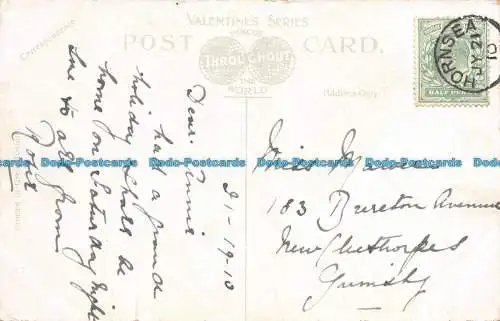 VALENTINES SERIES
FAMOUS
THROUGHOUT
THE
WORLD
POST CARD.
Correspondence
Address Only.
HALF PENNY
HORNSEA
JY 21
10
21-19-10
Dear Annie
had a grand
holiday shall be
home on Saturday night
love to all from
Rose
Miss
183 Brereton Avenue
New Cleethorpes
Grimsby
Dodo-Postcards Dodo-Postcards Dodo-Postcards Dodo-Postcards Dodo-Postcards Dodo-Postcards